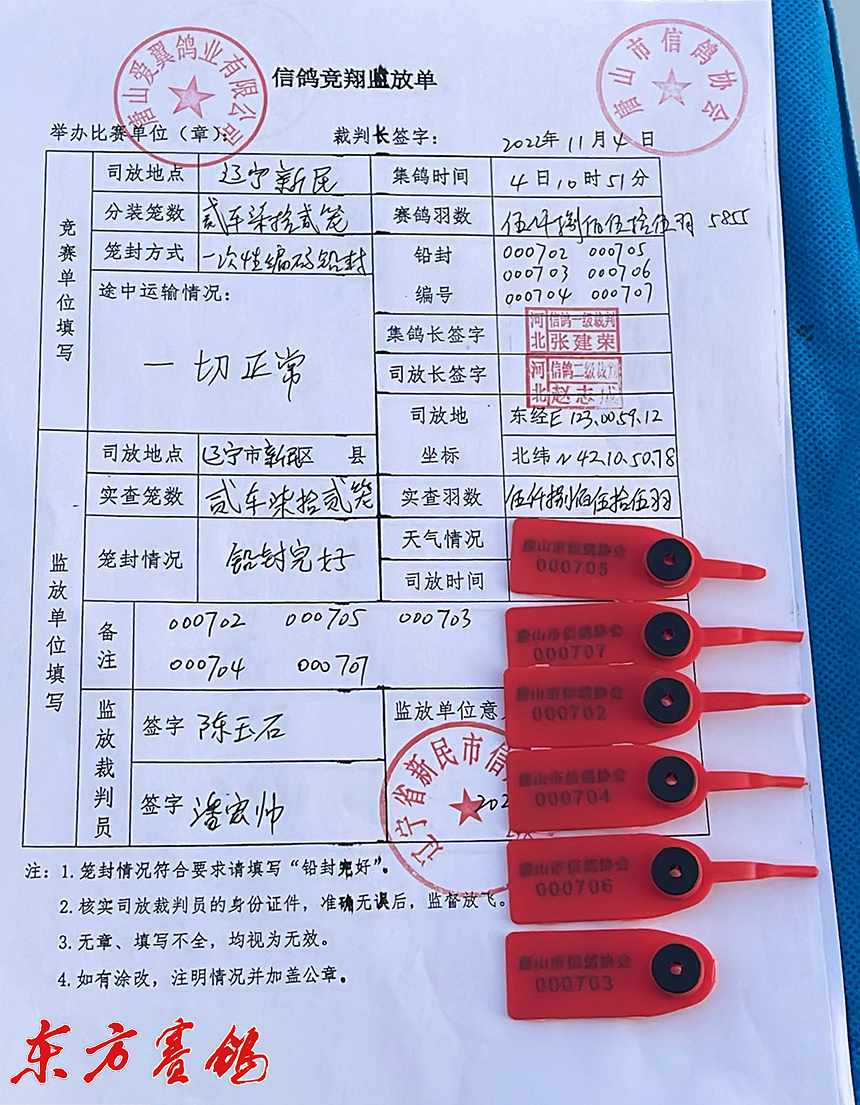 唐山爱翼鸽业有限公司
唐山市信鸽协会
信鸽竞翔监放单
举办比赛单位（章）：
裁判长签字：
2022年11月4日
竞赛单位填写
司放地点 辽宁新民 集鸽时间 4日10时51分
分装笼数 贰车柒拾贰笼 赛鸽羽数 伍仟捌佰伍拾伍羽 5855
笼封方式 一次性编码铅封 铅封
000702 000705
000703 000706
途中运输情况： 编号 000704 000707
一切正常
集鸽长签字 河北 信鸽一级裁判 张建荣
司放长签字 河北 信鸽二级裁判 赵志成
司放地 东经E 123.00.59.12
监放单位填写
司放地点 辽宁市新民区 县 坐标 北纬N 42.10.50.78
实查笼数 贰车柒拾贰笼 实查羽数 伍仟捌佰伍拾伍羽
笼封情况 铅封完好 天气情况
司放时间
备注 000702 000705 000703
000704 000707
监放裁判员
签字 陈玉石 监放单位意
签字 潘宏帅 202
辽宁省新民市信
注：1.笼封情况符合要求请填写“铅封完好”。
2.核实司放裁判员的身份证件，准确无误后，监督放飞。
3.无章、填写不全，均视为无效。
4.如有涂改，注明情况并加盖公章。
唐山市信鸽协会
000705
唐山市信鸽协会
000707
唐山市信鸽协会
000702
唐山市信鸽协会
000704
唐山市信鸽协会
000706
唐山市信鸽协会
000703
东方赛鸽